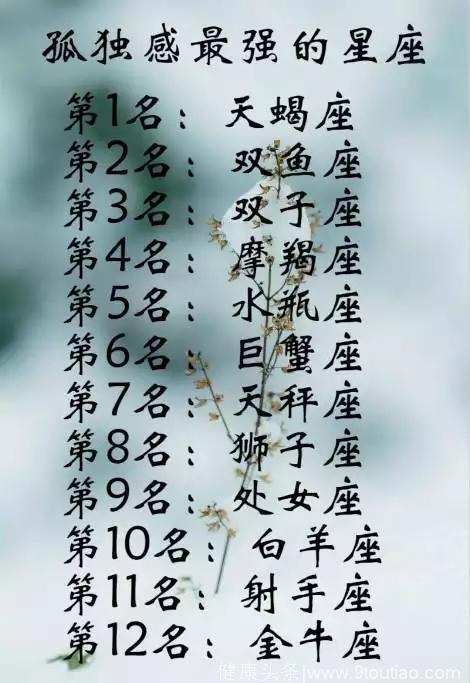 孤独感最强的星座
第1名：天蝎座
第2名：双鱼座
第3名：双子座
第4名：摩羯座
第5名：水瓶座
第6名：巨蟹座
第7名：天秤座
第8名：狮子座
第9名：处女座
第10名：白羊座
第11名：射手座
第12名：金牛座
健康头条|www.9toutiao.com